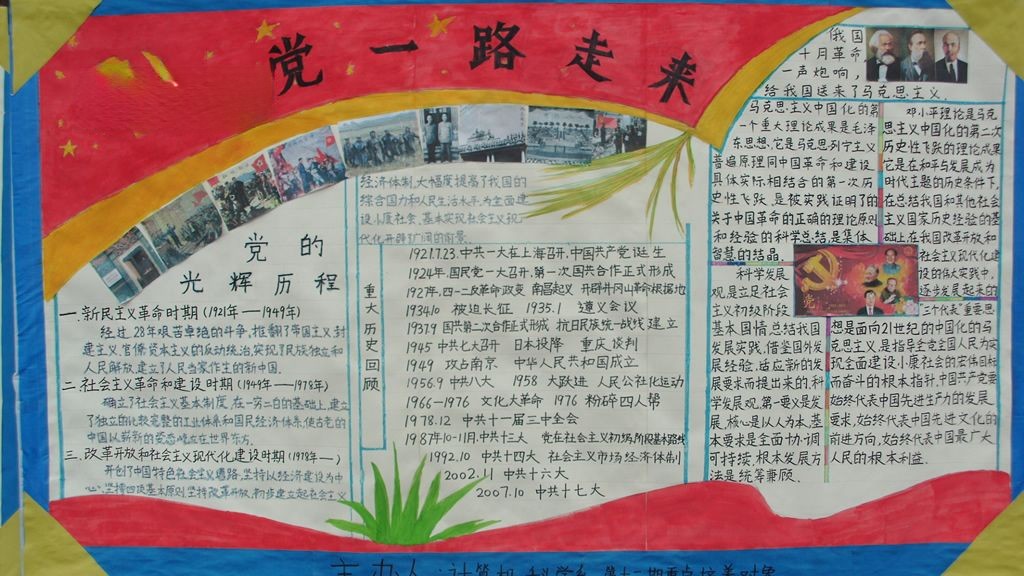 党一路走来
党的
光辉历程
一.新民主义革命时期(1921年——1949年)
经过28年艰苦卓绝的斗争,推翻了帝国主义.封
建主义.官僚资本主义的反动统治,实现了民族独立和
人民解放,建立了人民当家作主的新中国.
二.社会主义革命和建设时期(1949年——1978年)
确立了社会主义基本制度,在一穷二白的基础上,建立
了独立的比较完整的工业体系和国民经济体系,使古老的
中国以崭新的姿态屹立在世界东方.
三.改革开放和社会主义现代化建设时期(1978年——)
开创了中国特色社会主义道路,坚持以经济建设为中
心,坚持四项基本原则,坚持改革开放,初步建立起社会主义
经济体制,大幅度提高了我国的
综合国力和人民生活水平,为全面建
设小康社会,基本实现社会主义现
代化开辟了广阔的前景.
重大历史回顾
1921.7.23.中共一大在上海召开,中国共产党诞生
1924年.国民党一大召开,第一次国共合作正式形成
1927年,四一二反革命政变 南昌起义 开辟井冈山革命根据地
1934.10 被迫长征 1935.1 遵义会议
1937.9 国共第二次合作正式形成 抗日民族统一战线建立
1945 中共七大召开 日本投降 重庆谈判
1949 攻占南京 中华人民共和国成立
1956.9 中共八大 1958 大跃进 人民公社化运动
1966—1976 文化大革命 1976 粉碎四人帮
1978.12 中共十一届三中全会
1987年10-11月.中共十三大 党在社会主义初级阶段基本路线
1992.10 中共十四大 社会主义市场经济体制
2002.11 中共十六大
2007.10 中共十七大
俄国
十月革命
一声炮响,
给我国送来了马克思主义.
马克思主义中国化的第
一个重大理论成果是毛泽
东思想,它是马克思列宁主义
普遍原理同中国革命和建设
具体实际相结合的第一次历
史性飞跃,是被实践证明了的
关于中国革命的正确的理论原则
和经验的科学总结是集体
智慧的结晶.
科学发展
观,是立足社会
主义初级阶段
基本国情,总结我国
发展实践,借鉴国外发
展经验,适应新的发
展要求而提出来的.科
学发展观,第一要义是发
展,核心是以人为本,基
本要求是全面协调
可持续,根本发展方
法是统筹兼顾.
邓小平理论是马克
思主义中国化的第二次
历史性飞跃的理论成果
它是在和平与发展成为
时代主题的历史条件下,
在总结我国和其他社会
主义国家历史经验的基
础上在我国改革开放和
社会主义现代化建
设的伟大实践中,
逐步发展起来的
"三个代表"重要思
想是面向21世纪的中国化的马
克思主义,是指导全党全国人民为实
现全面建设小康社会的宏伟目标
而奋斗的根本指针,中国共产党要
始终代表中国先进生产力的发展
要求,始终代表中国先进文化的
前进方向,始终代表中国最广大
人民的根本利益.
主办人:计算机科学系 第十二期重点培养对象